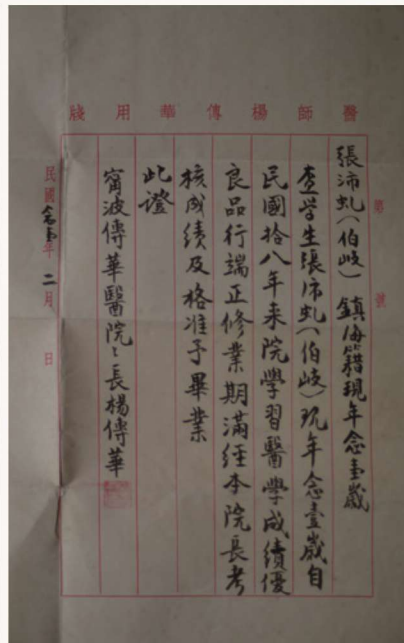 醫師楊傳華用牋
第　號
張沛虬(伯岐)鎮海籍現年念壹歲
查學生張沛虬(伯岐)現年念壹歲自
民國拾八年来院學習醫學成績優
良品行端正修業期滿經本院長考
核成績及格准予畢業
此證
甯波傳華醫院〻長楊傳華
民國念壹年二月　日